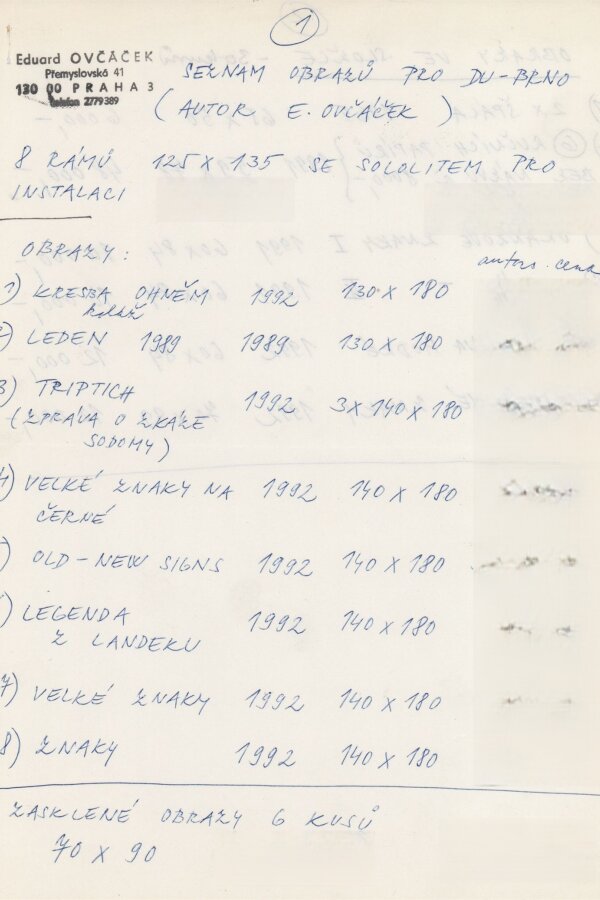 1
Eduard OVČÁČEK
Přemyslovská 41
130 00 PRAHA 3
telefon 2779389
SEZNAM OBRAZŮ PRO DU-BRNO
(AUTOR E. OVČÁČEK)
8 RÁMŮ 125 X 135 SE SOLOLITEM PRO
INSTALACI
OBRAZY:
autors. cena
1) KRESBA OHNĚM 1992 130 X 180
koláž
) LEDEN 1989 1989 130 X 180
3) TRIPTICH 1992 3X 140 X 180
(ZPRÁVA O ZKÁZE
SODOMY)
4) VELKÉ ZNAKY NA 1992 140 X 180
ČERNÉ
) OLD-NEW SIGNS 1992 140 X 180
) LEGENDA 1992 140 X 180
Z LANDEKU
7) VELKÉ ZNAKY 1992 140 X 180
8) ZNAKY 1992 140 X 180
ZASKLENÉ OBRAZY 6 KUSŮ
70 X 90